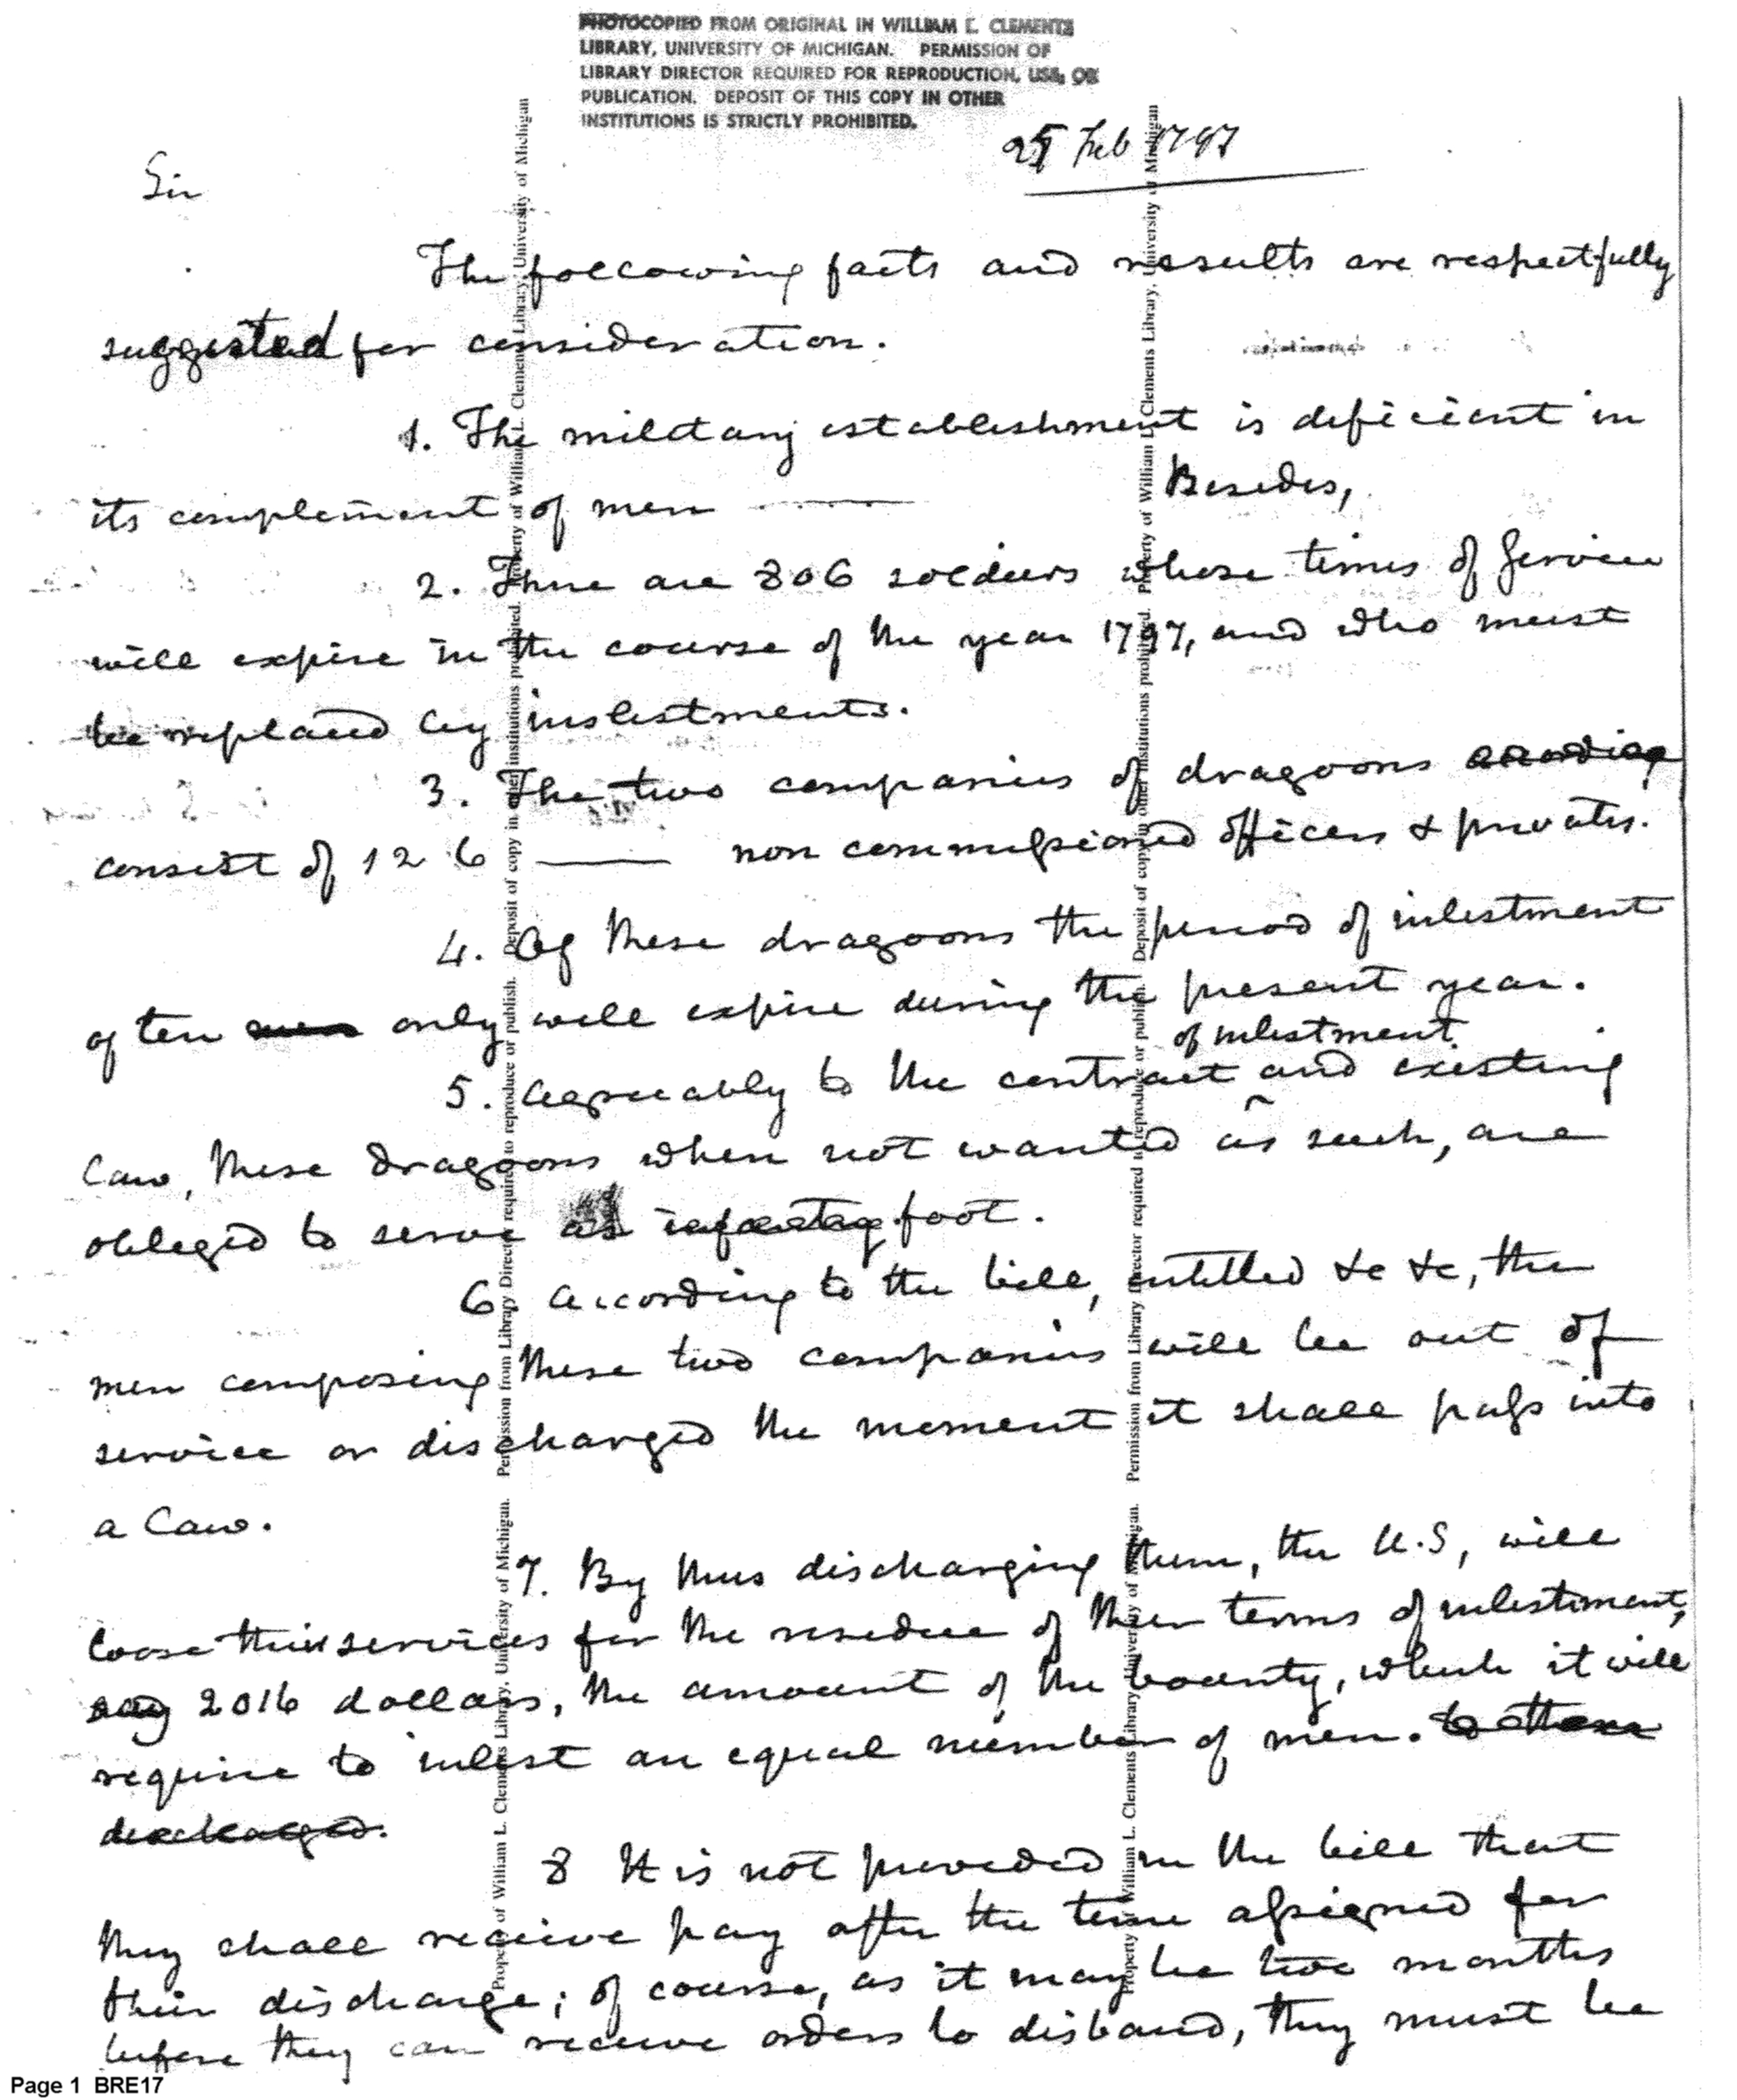 PHOTOCOPIED FROM ORIGINAL IN WILLIAM L. CLEMENTS
LIBRARY, UNIVERSITY OF MICHIGAN. PERMISSION OF
LIBRARY DIRECTOR REQUIRED FOR REPRODUCTION, USE, OR
PUBLICATION. DEPOSIT OF THIS COPY IN OTHER
INSTITUTIONS IS STRICTLY PROHIBITED.
Feb 1797
Sir
The following facts and results are respectfully
suggested for consideration.
1. The military establishment is deficient in
its complement of men
Besides,
2. There are 806 soldiers whose times of service
will expire in the course of the year 1797, and who must
be replaced by inlistments.
3. The two companies of dragoons
consist of 126 non commissioned officers & privates.
4. Of these dragoons the period of inlistment
of ten men only will expire during the present year.
of inlistment
5. Agreeably to the contract and existing
law, these dragoons when not wanted as such, are
obliged to serve as infantry foot.
6. According to the bill, entitled &c &c, the
men composing these two companies will be out of
service or discharged the moment it shall pass into
a law.
7. By thus discharging them, the U.S, will
loose their services for the residue of their terms of inlistment,
say 2016 dollars, the amount of the bounty, which it will
require to inlist an equal number of men. to those
discharged.
8 It is not provided in the bill that
they shall receive pay after the time assigned for
their discharge; of course, as it may be two months
before they can receive orders to disband, they must be
Property of William L. Clements Library, University of Michigan. Permission from Library Director required to reproduce or publish. Deposit of copy in other institutions prohibited. Property of William L. Clements Library, University of Michigan
Property of William L. Clements Library, University of Michigan. Permission from Library Director required to reproduce or publish. Deposit of copy in other institutions prohibited. Property of William L. Clements Library, University of Michigan
Page 1 BRE17